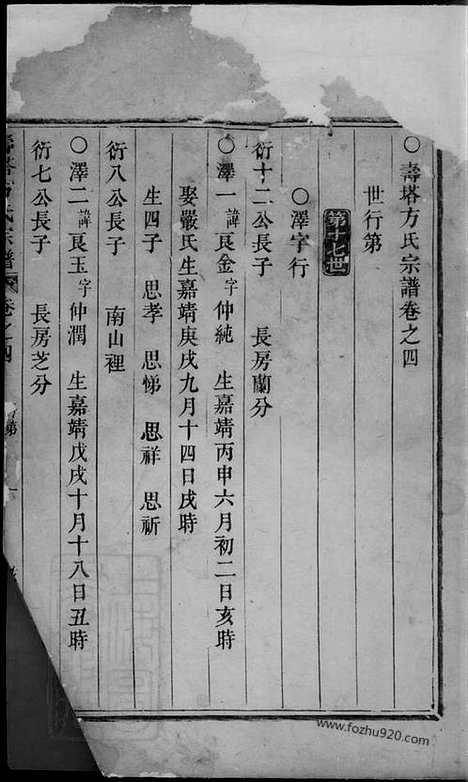 ○壽塔方氏宗譜卷之四
世行第
第十七世
○澤字行
衍十二公長子 長房蘭分
○澤一諱良金字仲純 生嘉靖丙申六月初二日亥時
娶嚴氏生嘉靖庚戌九月十四日戌時
生四子 思孝 思悌 思祥 思祈
衍八公長子 南山裡
○澤二諱良玉字仲潤 生嘉靖戊戌十月十八日丑時
衍七公長子 長房芝分
方氏宗譜 卷之四
www.fozhu920.com